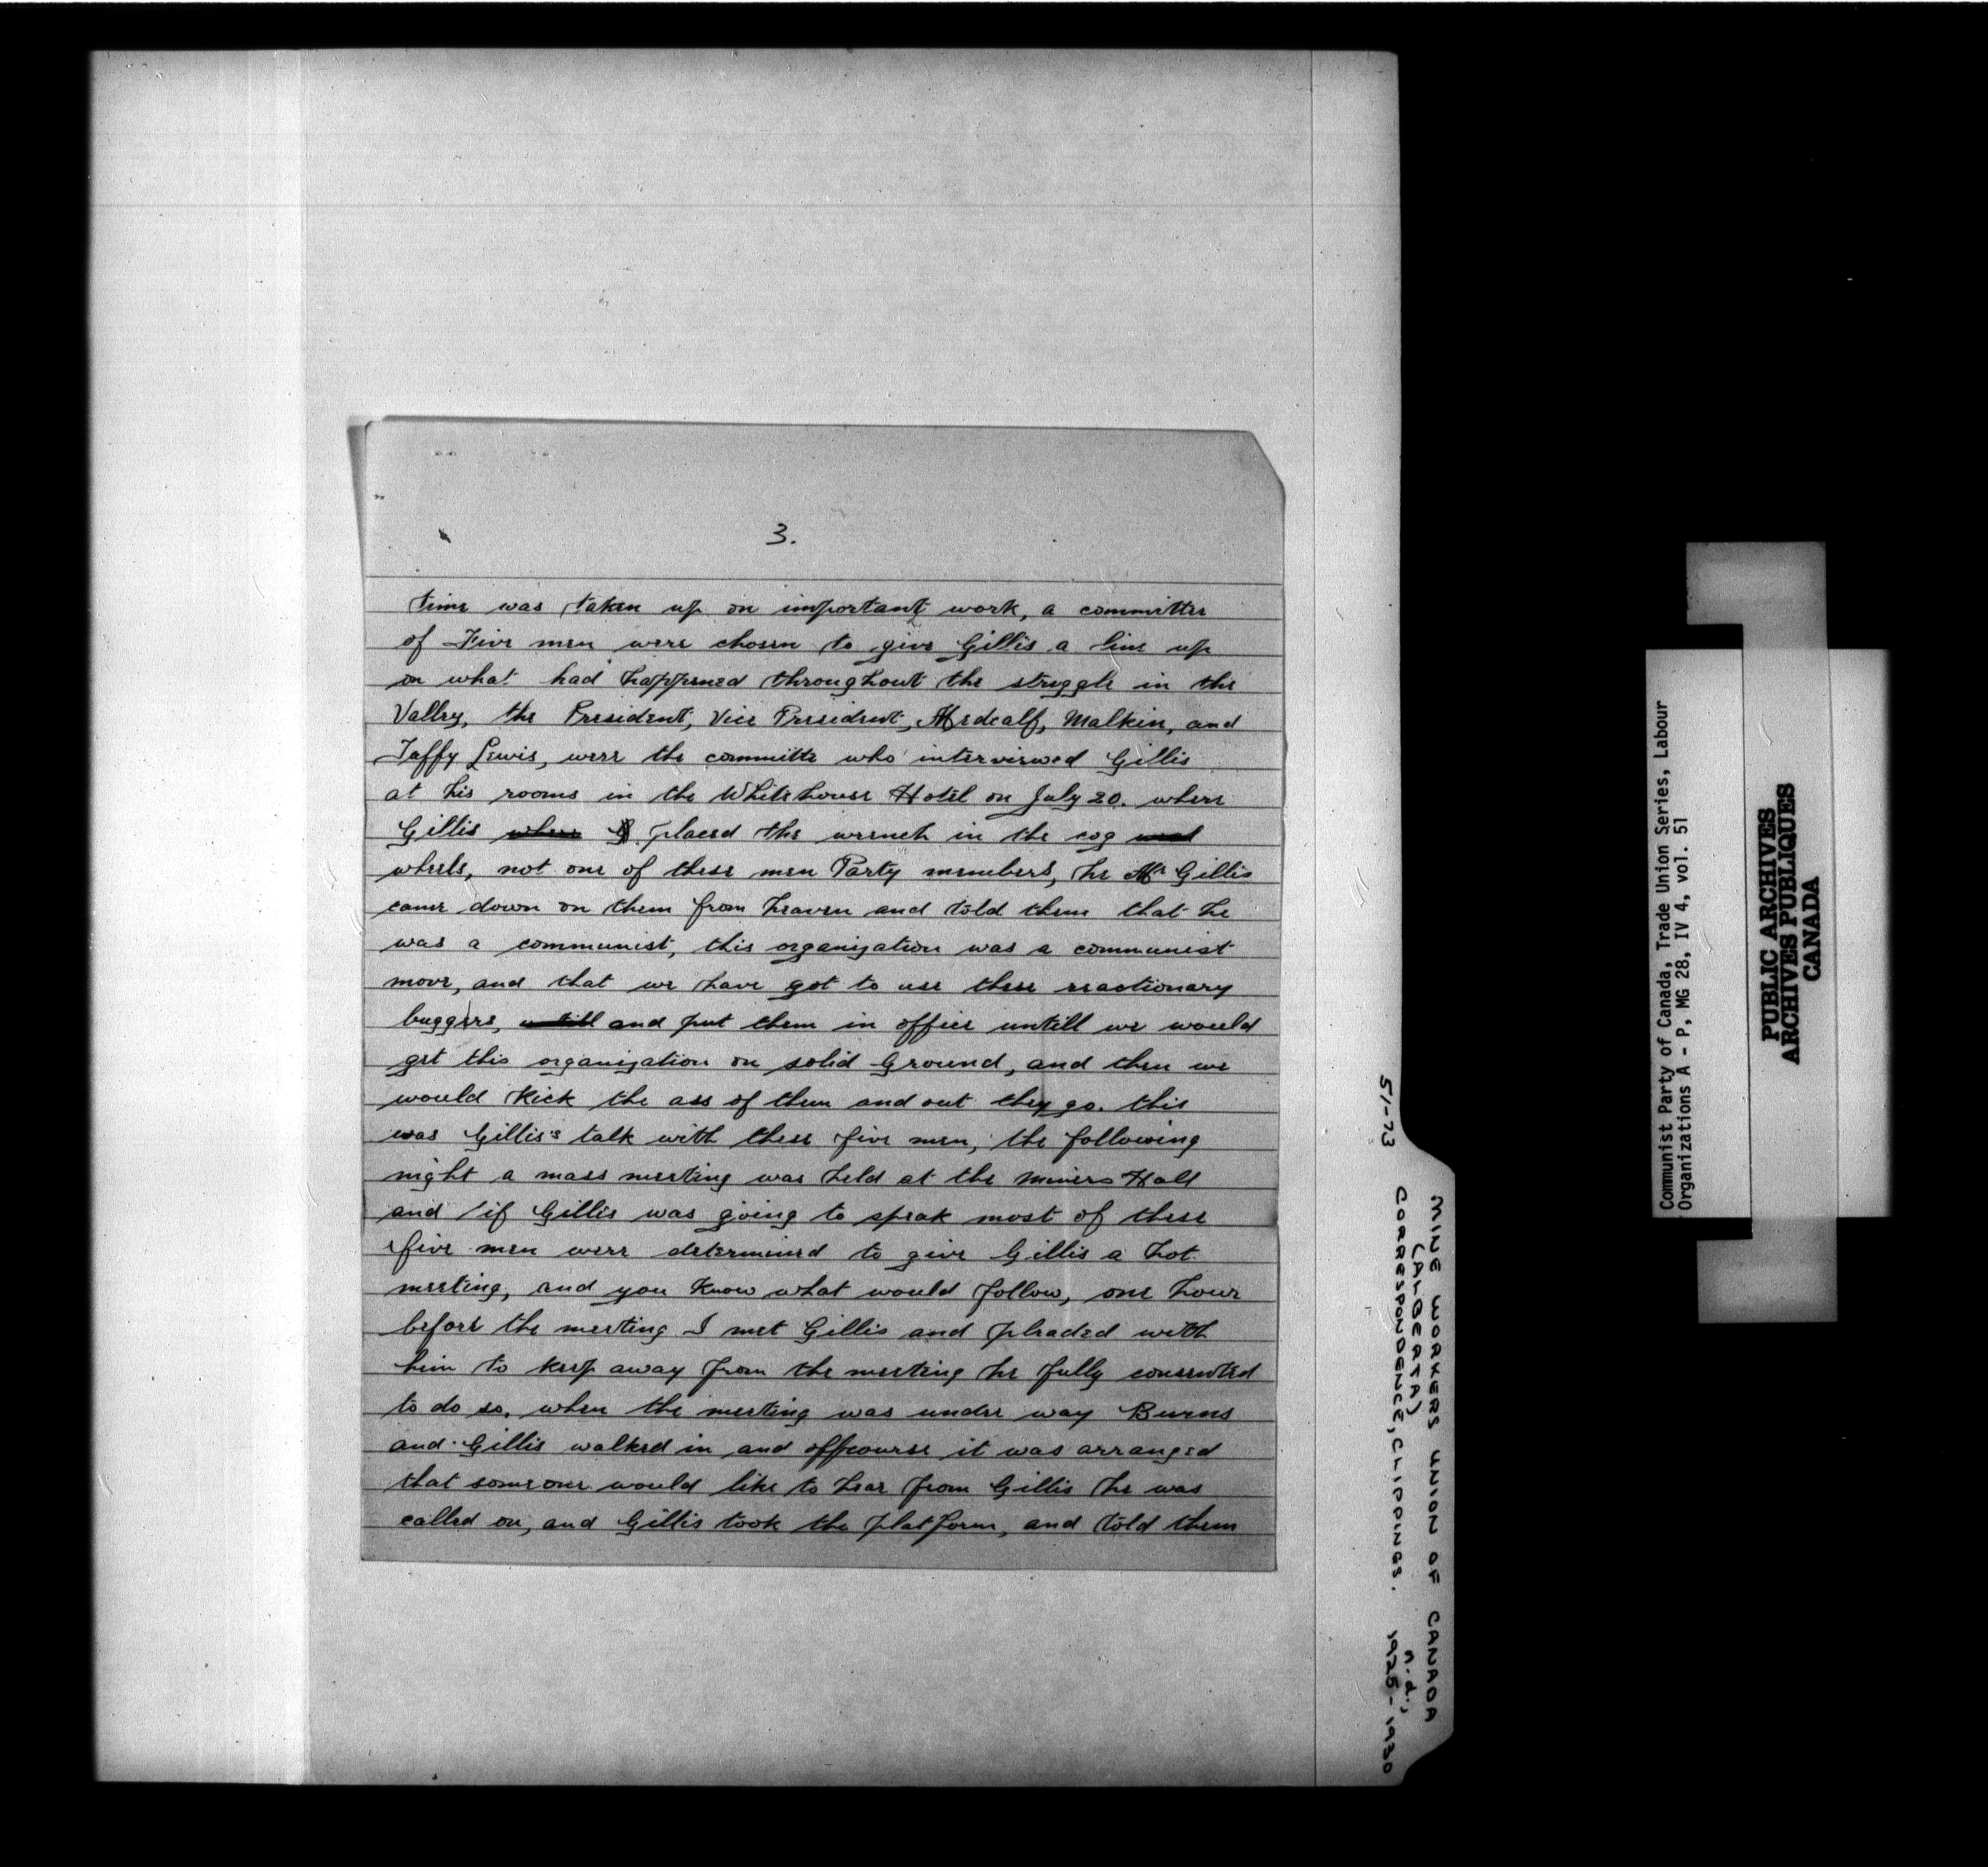 3.
time was taken up on important work, a committee
of Five men were chosen to give Gillis a line up
on what had happened throughout the struggle in the
Valley, the President, Vice President, Medcalf, Malkin, and
Taffy Lewis, were the committe who interviewed Gillis
at his rooms in the Whitehouse Hotel on July 20. where
Gillis where placed the wrench in the cog
wheels, not one of these men Party members, he Mr Gillis
came down on them from heaven and told them that he
was a communist, this organization was a communist
move, and that we have got to use these reactionary
buggers, untill and put them in office untill we would
get this organization on solid Ground, and then we
would kick the ass of them and out they go. this
was Gillis's talk with these five men, the following
night a mass meeting was held at the miners Hall
and if Gillis was going to speak most of these
five men were determined to give Gillis a hot
meeting, and you know what would follow, one hour
before the meeting I met Gillis and pleaded with
him to keep away from the meeting he fully consented
to do so, when the meeting was under way Burns
and Gillis walked in and offcourse it was arranged
that someone would like to hear from Gillis he was
called on, and Gillis took the platform, and told them
51-73
MINE WORKERS UNION OF CANADA
(ALBERTA) n.d.,
CORRESPONDENCE, CLIPPINGS. 1925-1930
Communist Party of Canada, Trade Union Series, Labour
Organizations A - P, MG 28, IV 4, vol. 51
PUBLIC ARCHIVES
ARCHIVES PUBLIQUES
CANADA